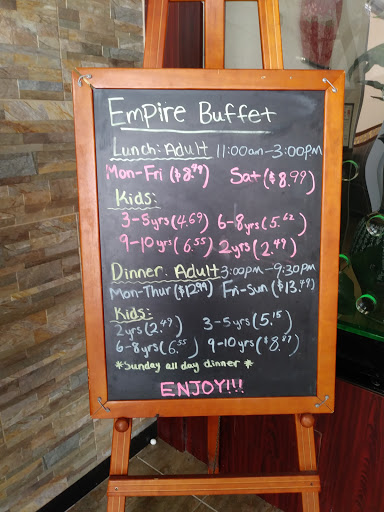 Empire Buffet
Lunch: Adult 11:00am-3:00pm
Mon-Fri ($8.99) Sat ($8.99)
Kids:
3-5yrs (4.69) 6-8yrs (5.62)
9-10yrs (6.55) 2yrs (2.49)
Dinner. Adult 3:00pm-9:30pm
Mon-Thur ($12.99) Fri-Sun ($13.49)
Kids:
2yrs (2.49) 3-5yrs (5.15)
6-8yrs (6.55) 9-10yrs ($8.87)
*Sunday all day dinner *
ENJOY!!!